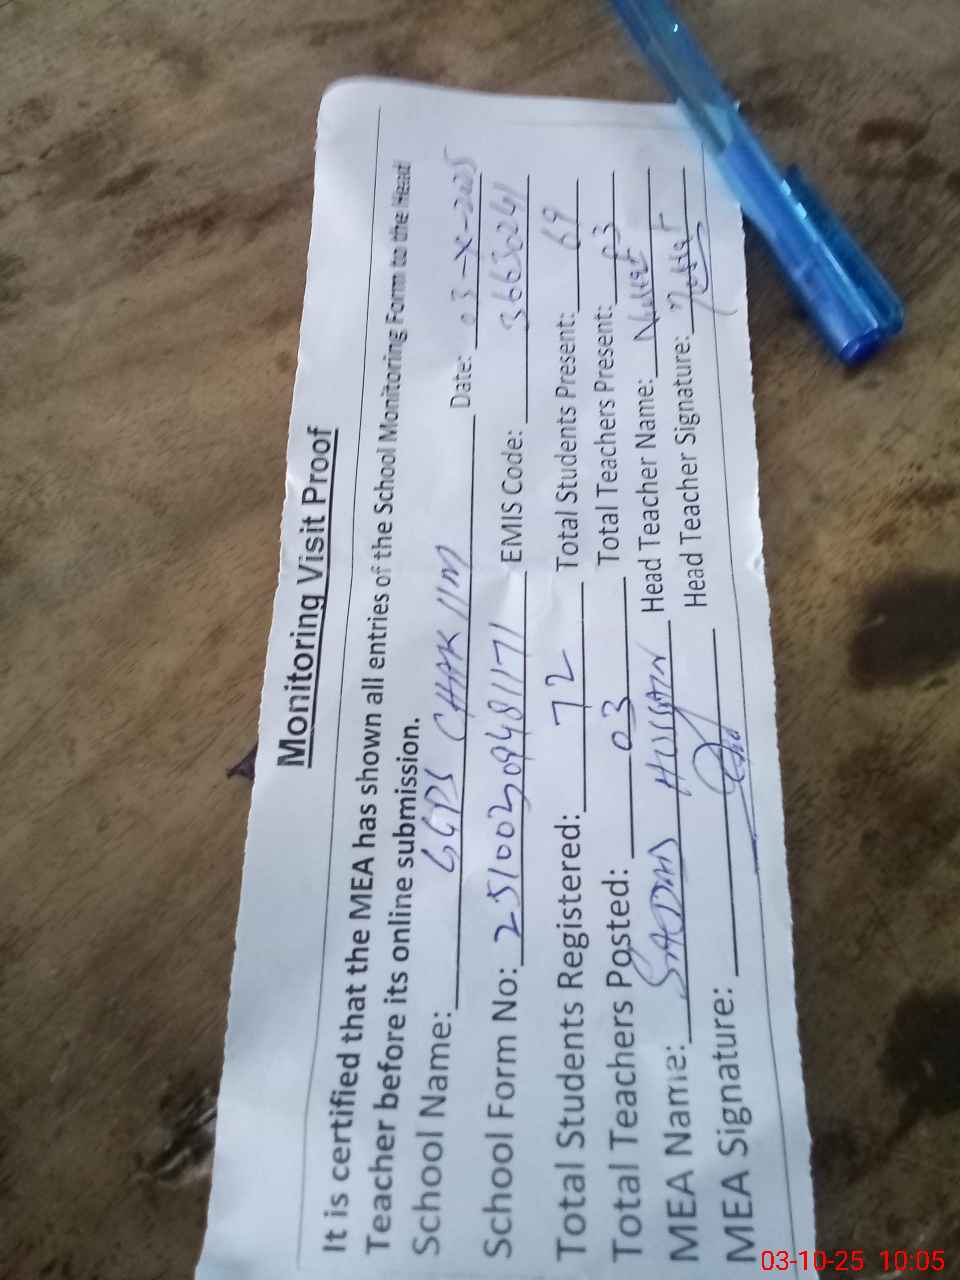 Monitoring Visit Proof
It is certified that the MEA has shown all entries of the School Monitoring Form to the Head
Teacher before its online submission.
School Name: GGPS CHAK 11M Date: 03-X-2025
School Form No: 25100309481171 EMIS Code: 36630241
Total Students Registered: 72 Total Students Present: 69
Total Teachers Posted: 03 Total Teachers Present: 03
MEA Name: HUSSAIN Head Teacher Name: Nusrat
MEA Signature: Head Teacher Signature: Nusrat
03-10-25 10:05